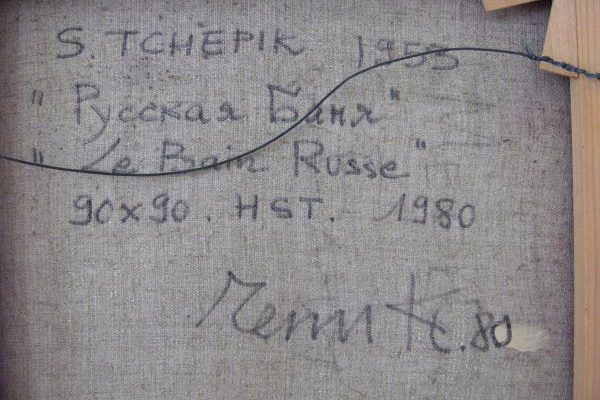 S. TCHEPIK 1953
"Русская Баня"
"Le Bain Russe"
90x90. HST. 1980
Чепик С. 80